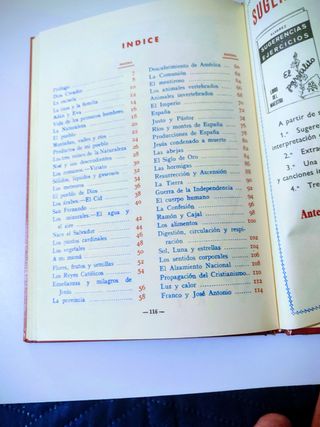 INDICE
Prólogo 7
Dios Creador 8
La escuela 10
La casa y la familia 12
Adán y Eva 14
Vida de los primeros hombres
La Naturaleza
El pueblo
Montañas, valles y ríos
Productos de mi pueblo
Los tres reinos de la Naturaleza
Noé y sus descendientes
Los romanos.—Viriato
Sólidos, líquidos y gaseosos
Los mamuts
El pueblo de Dios
Los árabes.—El Cid
San Fernando
Los minerales.—El agua y
el aire 42
Nace el Salvador 44
Los puntos cardinales 46
Los vegetales 48
A mi mamá 50
Flores, frutos y semillas 52
Los Reyes Católicos 54
Enseñanzas y milagros de
Jesús 56
La provincia 58
Descubrimiento de América 60
La Comunión 62
El mentiroso 64
Los animales vertebrados 66
Animales invertebrados
El Imperio
España
Justo y Pástor
Ríos y montes de España
Producciones de España
Jesús condenado a muerte
Las abejas
El Siglo de Oro
Las hormigas
Resurrección y Ascensión
La Tierra
Guerra de la Independencia
El cuerpo humano
La Confesión
Ramón y Cajal
Los alimentos 100
Digestión, circulación y respi-
ración 102
Sol, Luna y estrellas 104
Los sentidos corporales 106
El Alzamiento Nacional 108
Propagación del Cristianismo 110
Luz y calor 112
Franco y José Antonio 114
— 116 —
ALVAREZ
SUGERENCIAS
Y
EJERCICIOS
EL
LIBRO
DEL
MAESTRO
A partir de
1.º Sugere
interpretación
2.º Extra
3.º Una
y canciones in
4.º Tre